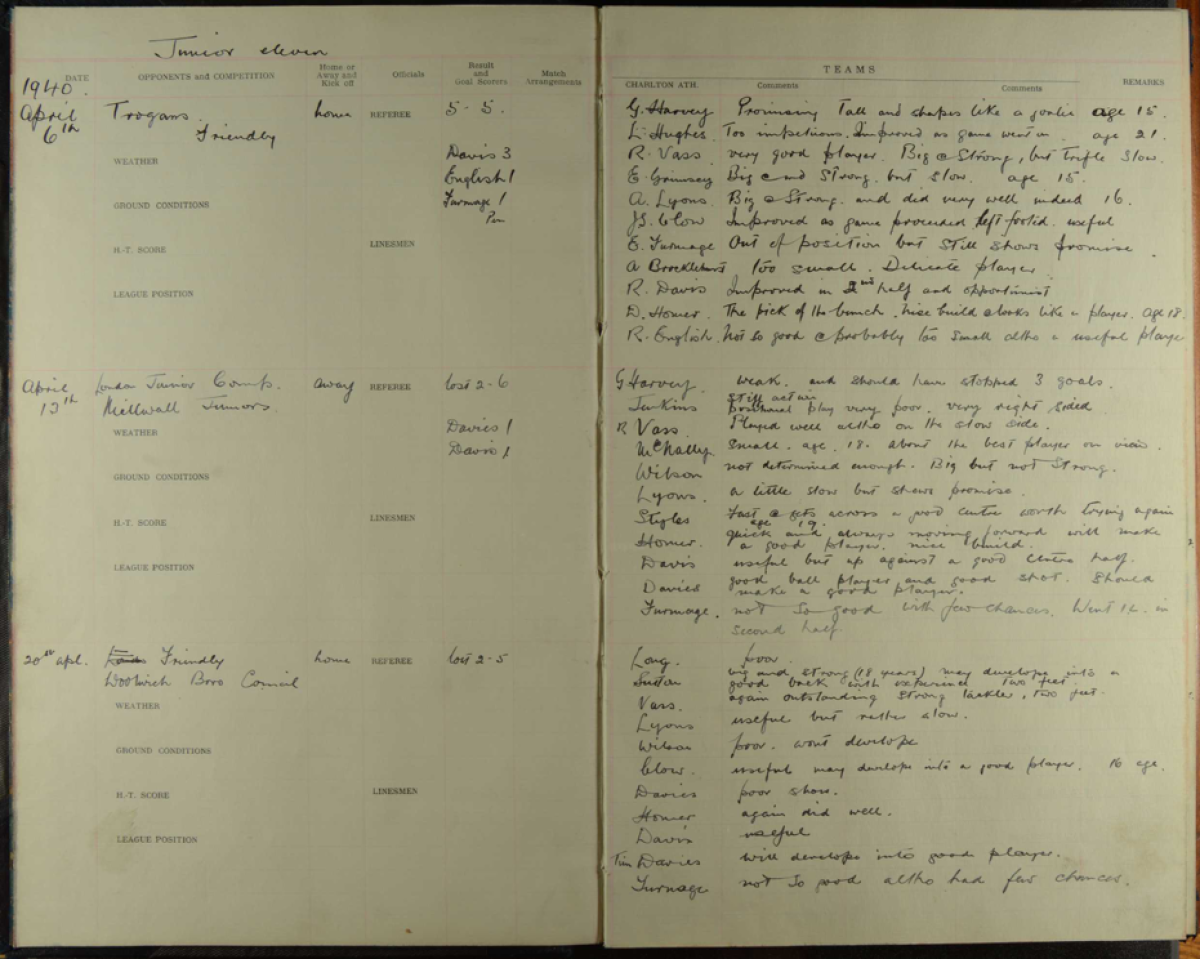 Junior eleven
DATE
OPPONENTS and COMPETITION
Home or Away and Kick off
Officials
Result and Goal Scorers
Match Arrangements
1940.
April 6th
Trogans.
Friendly
home
REFEREE
5 - 5.
WEATHER
Davis 3
English 1
GROUND CONDITIONS
Furmage 1
Pen
H.-T. SCORE
LINESMEN
LEAGUE POSITION
April 13th
London Junior Comb.
Millwall Juniors.
away
REFEREE
lost 2-6
WEATHER
Davies 1
Davis 1
GROUND CONDITIONS
H.-T. SCORE
LINESMEN
LEAGUE POSITION
20th Apl.
Friendly
Woolwich Boro Council
home
REFEREE
lost 2-5
WEATHER
GROUND CONDITIONS
H.-T. SCORE
LINESMEN
LEAGUE POSITION
TEAMS
CHARLTON ATH.
Comments
Comments
REMARKS
G. Harvey Promising Tall and shapes like a goalie age 15.
L. Hughes. Too impetuous. Improved as game went on. age 21.
R. Vass very good player. Big & Strong, but trifle slow.
E. Grimsey Big and Strong. but slow. age 15.
A. Lyons. Big & Strong. and did very well indeed 16.
Clow Improved as game proceeded left footed. useful
E. Furmage Out of position but still shows promise.
A Brocklehurst too small. Delicate player
R. Davis Improved in 2nd half and opportunist
D. Homer. The pick of the bunch. nice build & looks like a player. age 18.
R. English. Not so good & probably too small altho a useful player
G Harvey. weak. and should have stopped 3 goals.
Jenkins positional play very poor. very right sided
R Vass. Played well altho on the slow side.
McNally. Small. age. 18. about the best player on view.
Wilson not determined enough. Big but not strong.
Lyons. a little slow but shews promise.
Stigles Fast & gets across a good centre worth trying again
age 19.
Homer. quick and always moving forward will make
a good player. nice build.
Davis useful but up against a good centre half.
Davies good ball player and good shot. Should
make a good player.
Furmage. not so good with few chances. Went I.L. in
second half.
Long. poor.
Sutton big and strong (18 years) may develope into a
good back with experience two feet.
Vass. again outstanding strong tackler, two feet.
Lyons useful but rather slow.
Wilson poor. wont develope
Clow. useful may develope into a good player. 16 age.
Davies poor show.
Homer again did well.
Davis useful
Tim Davies will develope into good player.
Furmage not so good altho had few chances.